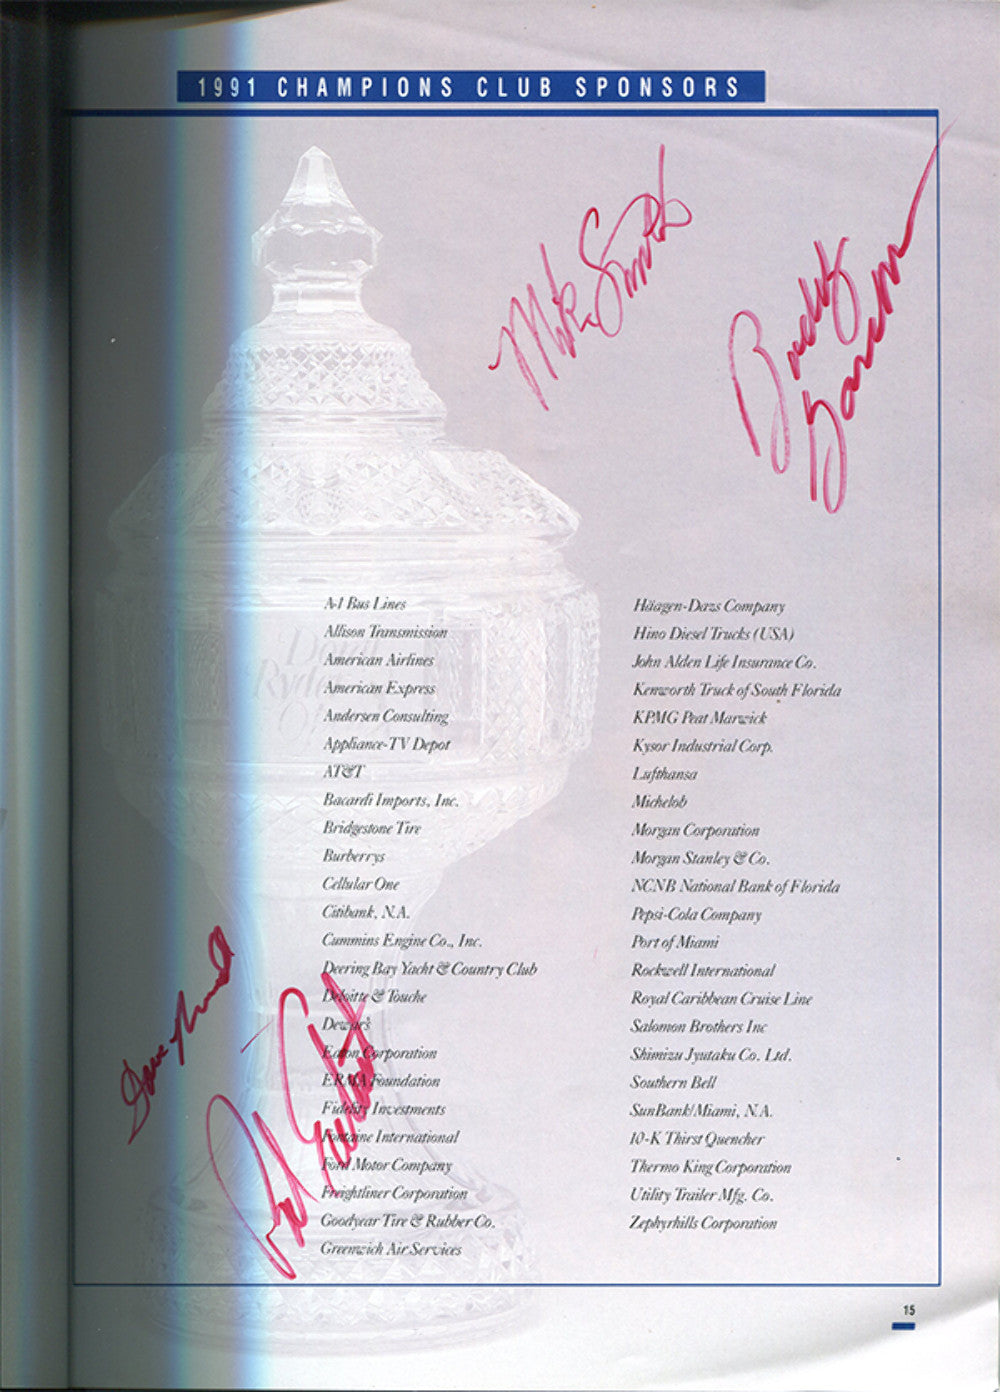 1991 CHAMPIONS CLUB SPONSORS
Mike Smith
Buddy
A-1 Bus Lines
Allison Transmission
American Airlines
American Express
Andersen Consulting
Appliance-TV Depot
AT&T
Bacardi Imports, Inc.
Bridgestone Tire
Burberrys
Cellular One
Citibank, N.A.
Cummins Engine Co., Inc.
Deering Bay Yacht & Country Club
Deloitte & Touche
Dewar's
Eaton Corporation
ERMA Foundation
Fidelity Investments
Fontaine International
Ford Motor Company
Freightliner Corporation
Goodyear Tire & Rubber Co.
Greenwich Air Services
Häagen-Dazs Company
Hino Diesel Trucks (USA)
John Alden Life Insurance Co.
Kenworth Truck of South Florida
KPMG Peat Marwick
Kysor Industrial Corp.
Lufthansa
Michelob
Morgan Corporation
Morgan Stanley & Co.
NCNB National Bank of Florida
Pepsi-Cola Company
Port of Miami
Rockwell International
Royal Caribbean Cruise Line
Salomon Brothers Inc
Shimizu Jyutaku Co. Ltd.
Southern Bell
SunBank/Miami, N.A.
10-K Thirst Quencher
Thermo King Corporation
Utility Trailer Mfg. Co.
Zephyrhills Corporation
15